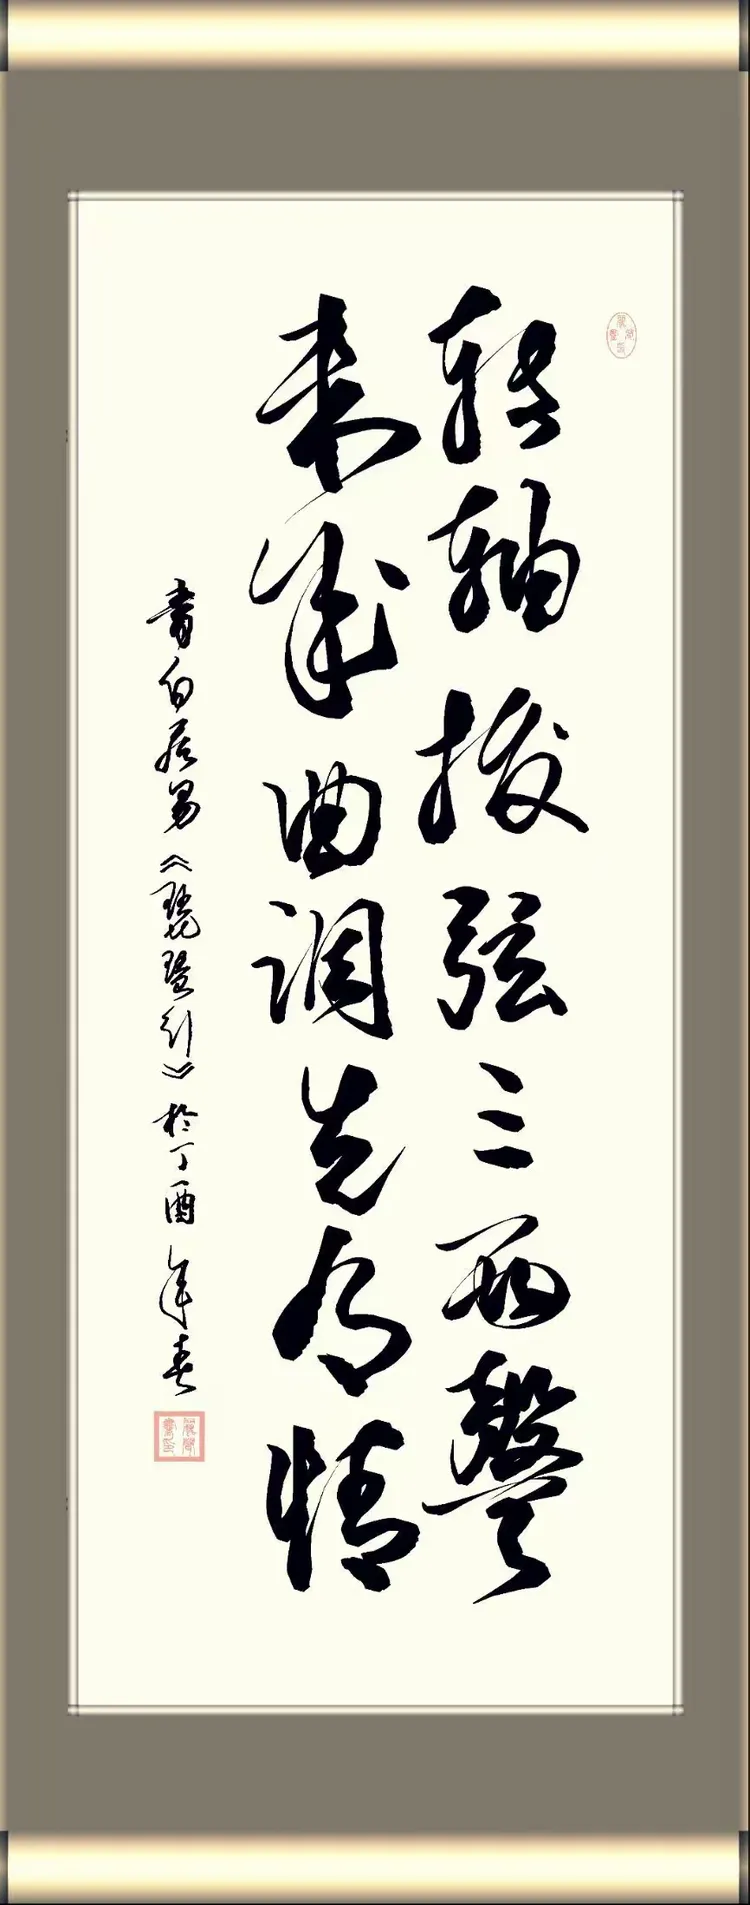 转轴拨弦三两聲
未成曲调先有情
書白居易《琵琶引》於丁酉年春